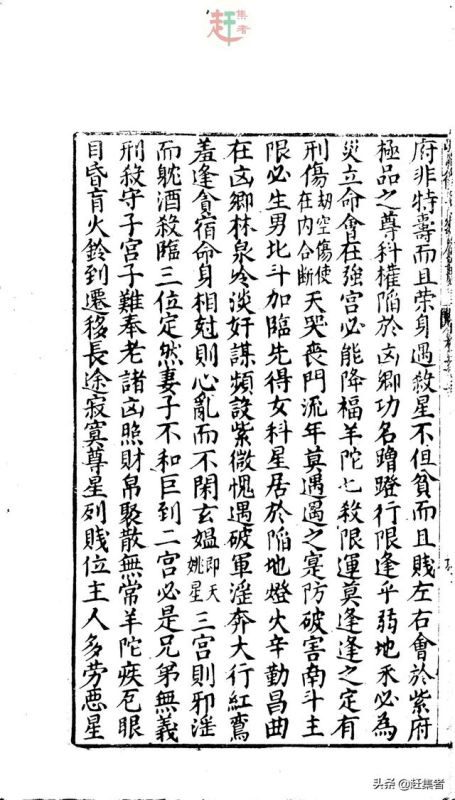 赶集者
府非特壽而且荣身遇殺星不但貧而且賤左右會於紫府
極品之尊科權陷於凶鄉功名蹭蹬行限逢乎弱地未必為
災立命會在強宮必能降福羊陀七殺限運莫逢逢之定有
刑傷劫空傷使在內合斷天哭喪門流年莫遇遇之寔防破害南斗主
限必生男北斗加臨先得女科星居於陷地燈火辛勤昌曲
在凶鄉林泉冷淡奸謀頻設紫微愧遇破軍淫奔大行紅鸞
羞逢貪宿命身相尅則心亂而不閑玄媼即天姚星三宮則邪淫
而躭酒殺臨三位定然妻子不和巨到二宮必是兄弟無義
刑殺守子宮子難奉老諸凶照財帛聚散無常羊陀疾厄眼
目昏盲火鈴到遷移長途寂寞尊星列賤位主人多勞惡星
头条 @赶集者